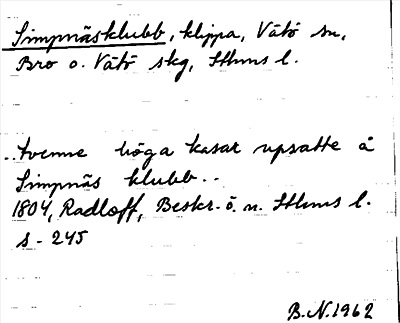 Simpnäsklubb, klippa, Vätö sn,
Bro o. Vätö skg, Sthms l.
..tvenne höga kasar upsatte å
Simpnäs klubb..
1804, Radloff, Beskr. ö. n. Sthms l.
s. 245
B.N. 1962